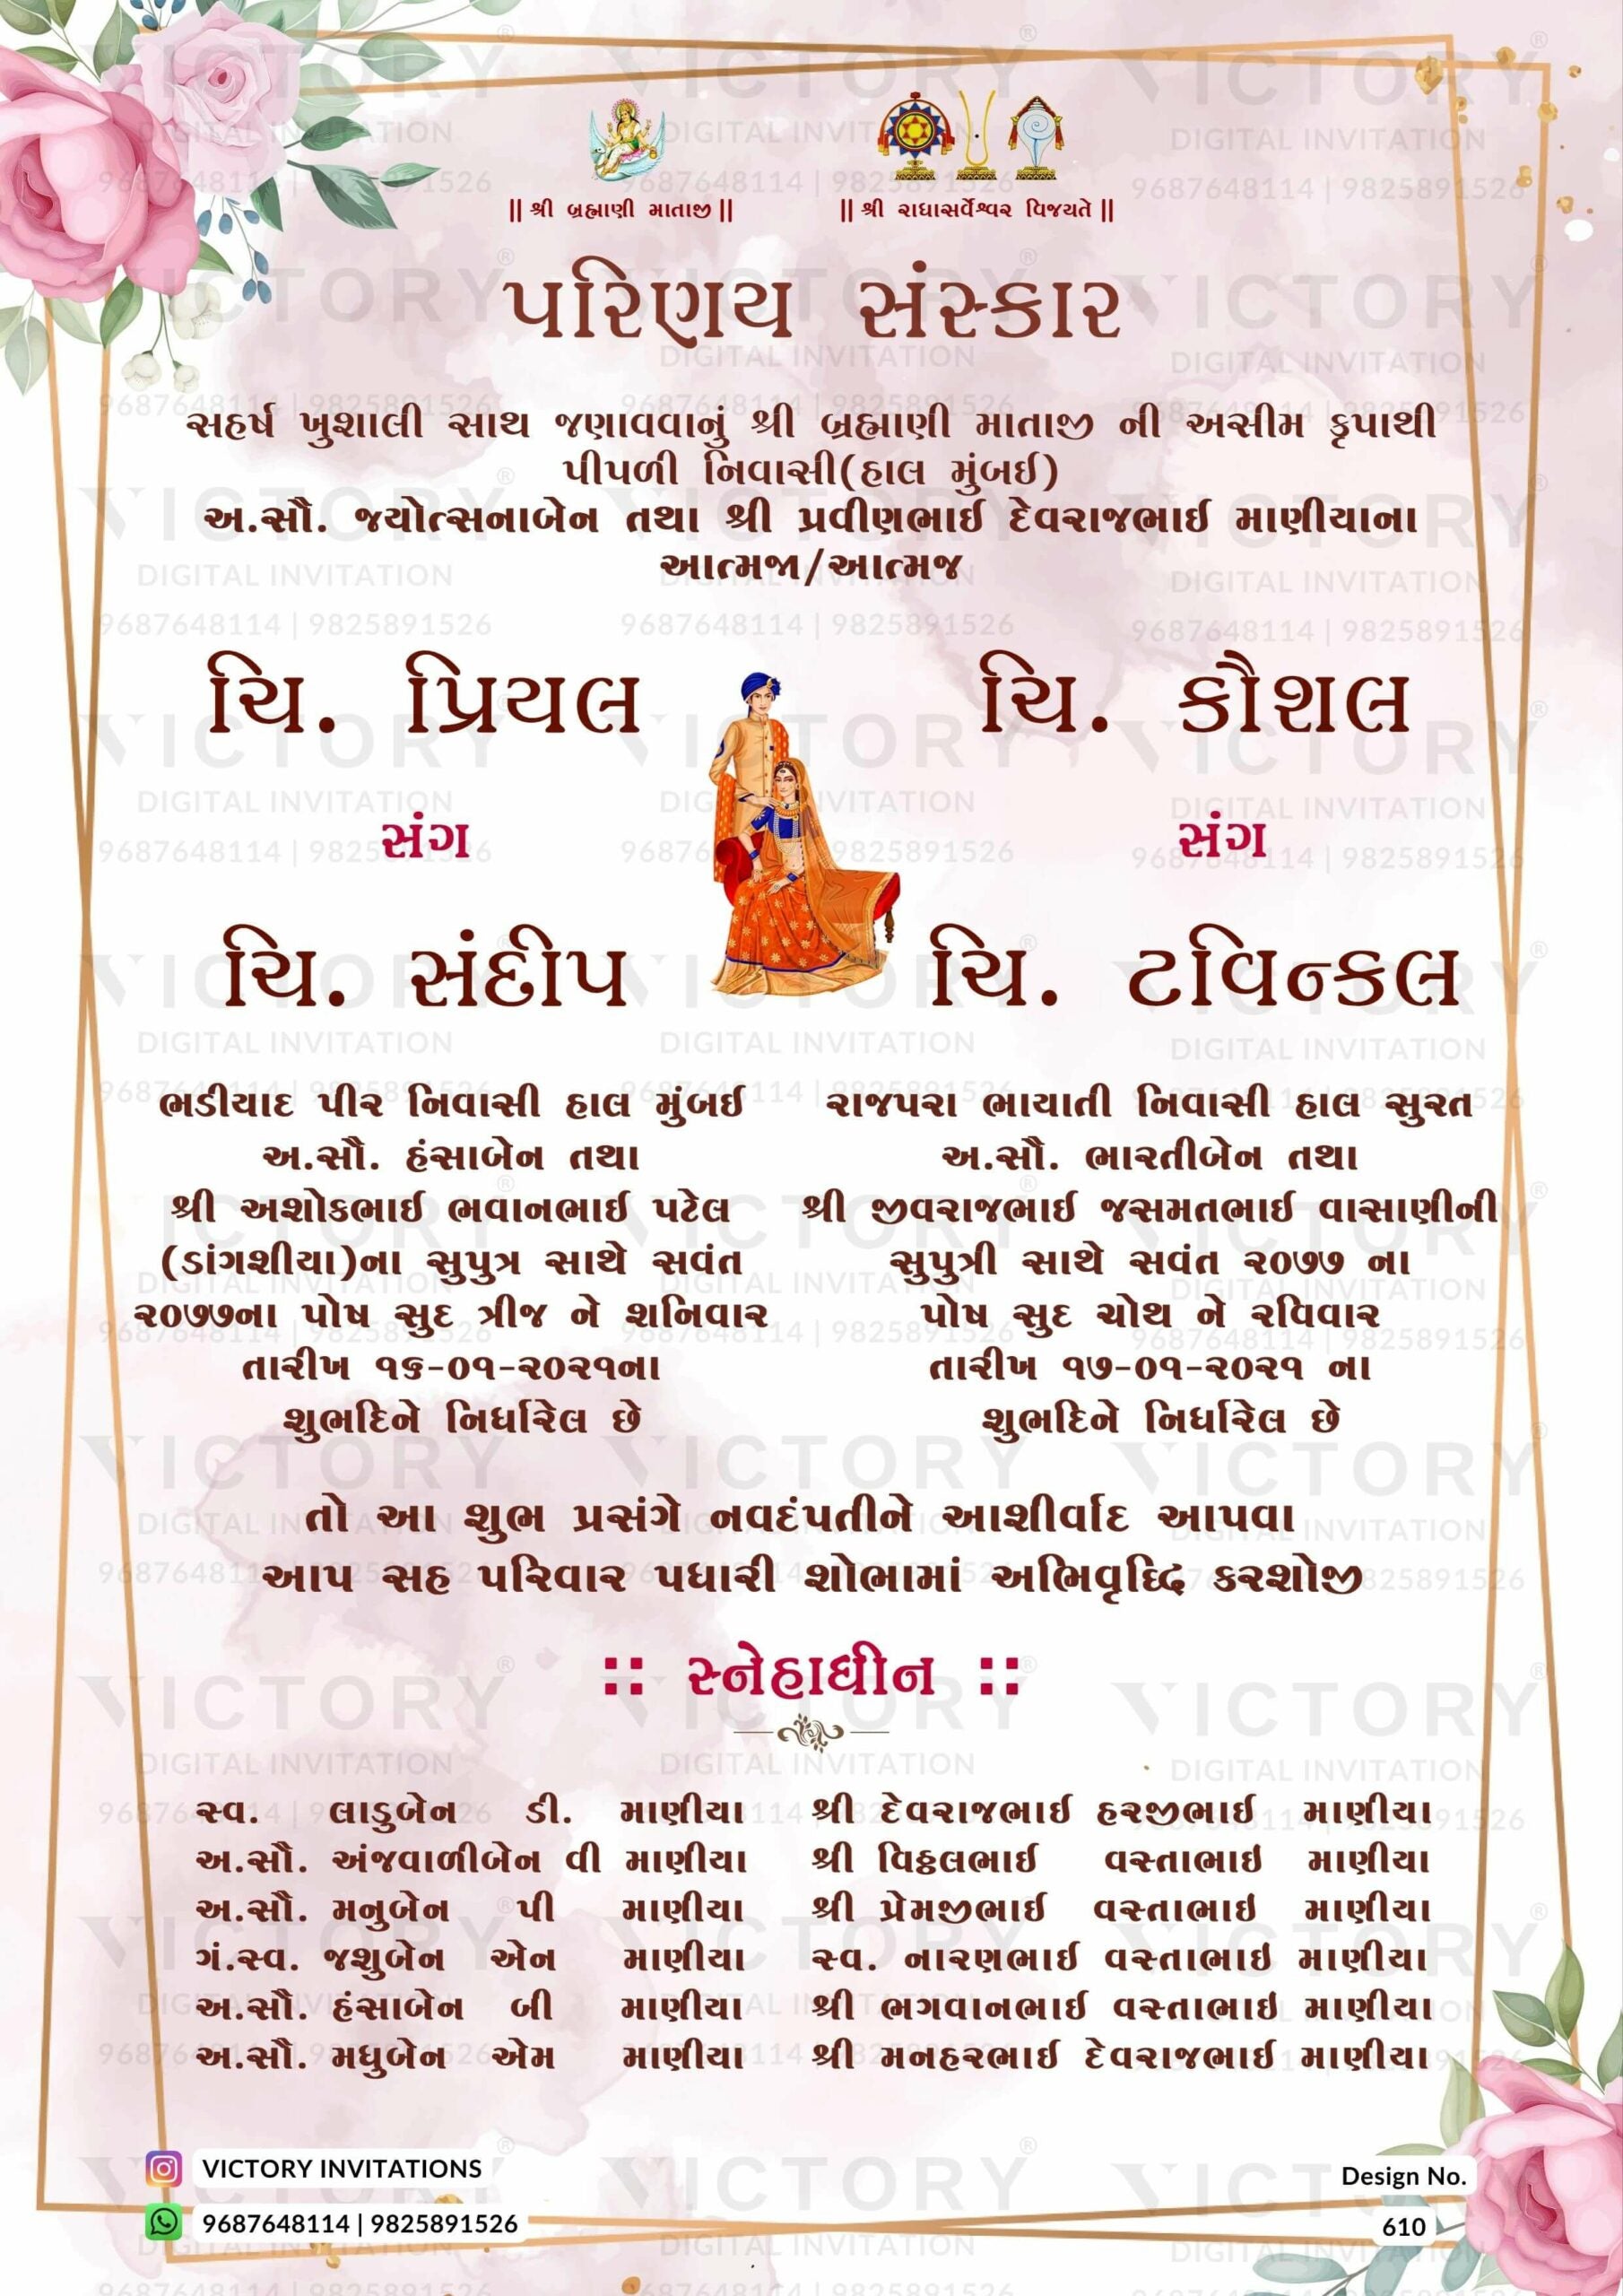 || શ્રી બ્રહ્માણી માતાજી || || શ્રી રાધાસર્વેશ્વર વિજયતે ||
પરિણય સંસ્કાર
સહર્ષ ખુશાલી સાથ જણાવવાનું શ્રી બ્રહ્માણી માતાજી ની અસીમ કૃપાથી
પીપળી નિવાસી(હાલ મુંબઈ)
અ.સૌ. જયોત્સનાબેન તથા શ્રી પ્રવીણભાઈ દેવરાજભાઈ માણીયાના
આત્મજા/આત્મજ
ચિ. પ્રિયલ
સંગ
ચિ. સંદીપ
ભડીયાદ પીર નિવાસી હાલ મુંબઈ
અ.સૌ. હંસાબેન તથા
શ્રી અશોકભાઈ ભવાનભાઈ પટેલ
(ડાંગશીયા)ના સુપુત્ર સાથે સવંત
૨૦૭૭ના પોષ સુદ ત્રીજ ને શનિવાર
તારીખ ૧૬-૦૧-૨૦૨૧ના
શુભદિને નિર્ધારેલ છે
ચિ. કૌશલ
સંગ
ચિ. ટવિન્કલ
રાજપરા ભાયાતી નિવાસી હાલ સુરત
અ.સૌ. ભારતીબેન તથા
શ્રી જીવરાજભાઈ જસમતભાઈ વાસાણીની
સુપુત્રી સાથે સવંત ૨૦૭૭ ના
પોષ સુદ ચોથ ને રવિવાર
તારીખ ૧૭-૦૧-૨૦૨૧ ના
શુભદિને નિર્ધારેલ છે
તો આ શુભ પ્રસંગે નવદંપતીને આશીર્વાદ આપવા
આપ સહ પરિવાર પધારી શોભામાં અભિવૃધ્ધિ કરશોજી
:: સ્નેહાધીન ::
સ્વ. લાડુબેન ડી. માણીયા શ્રી દેવરાજભાઈ હરજીભાઈ માણીયા
અ.સૌ. અંજવાળીબેન વી માણીયા શ્રી વિઠ્ઠલભાઈ વસ્તાભાઇ માણીયા
અ.સૌ. મનુબેન પી માણીયા શ્રી પ્રેમજીભાઈ વસ્તાભાઇ માણીયા
ગં.સ્વ. જશુબેન એન માણીયા સ્વ. નારણભાઈ વસ્તાભાઇ માણીયા
અ.સૌ. હંસાબેન બી માણીયા શ્રી ભગવાનભાઈ વસ્તાભાઇ માણીયા
અ.સૌ. મધુબેન એમ માણીયા શ્રી મનહરભાઈ દેવરાજભાઈ માણીયા
VICTORY INVITATIONS
9687648114 | 9825891526
Design No.
610
VICTORY
DIGITAL INVITATION
9687648114 | 9825891526